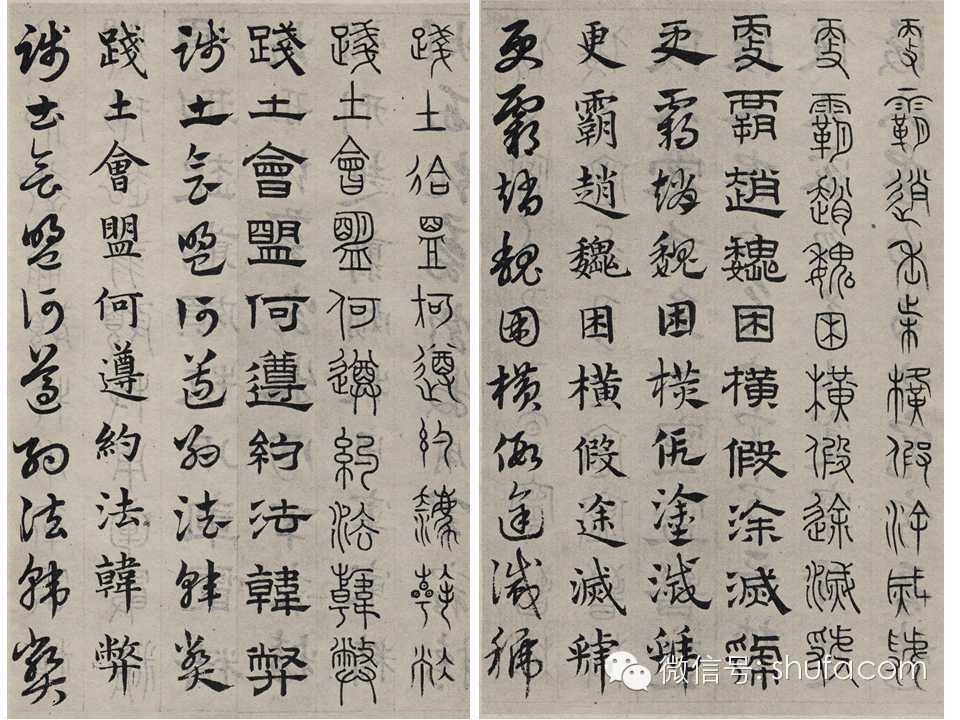 更霸趙魏困橫假涂滅虢
更霸趙魏困橫假途滅虢
更霸趙魏困橫假涂滅虢
更霸趙魏困橫假塗滅虢
更霸趙魏困橫假途滅虢
更霸趙魏困橫假途滅虢
踐土會盟何遵約法韓弊
踐土會盟何遵約法韓弊
踐土會盟何遵約法韓弊
踐土會盟何遵約法韓弊
踐土會盟何遵約法韓弊
踐土會盟何遵約法韓弊
微信号: shufacom